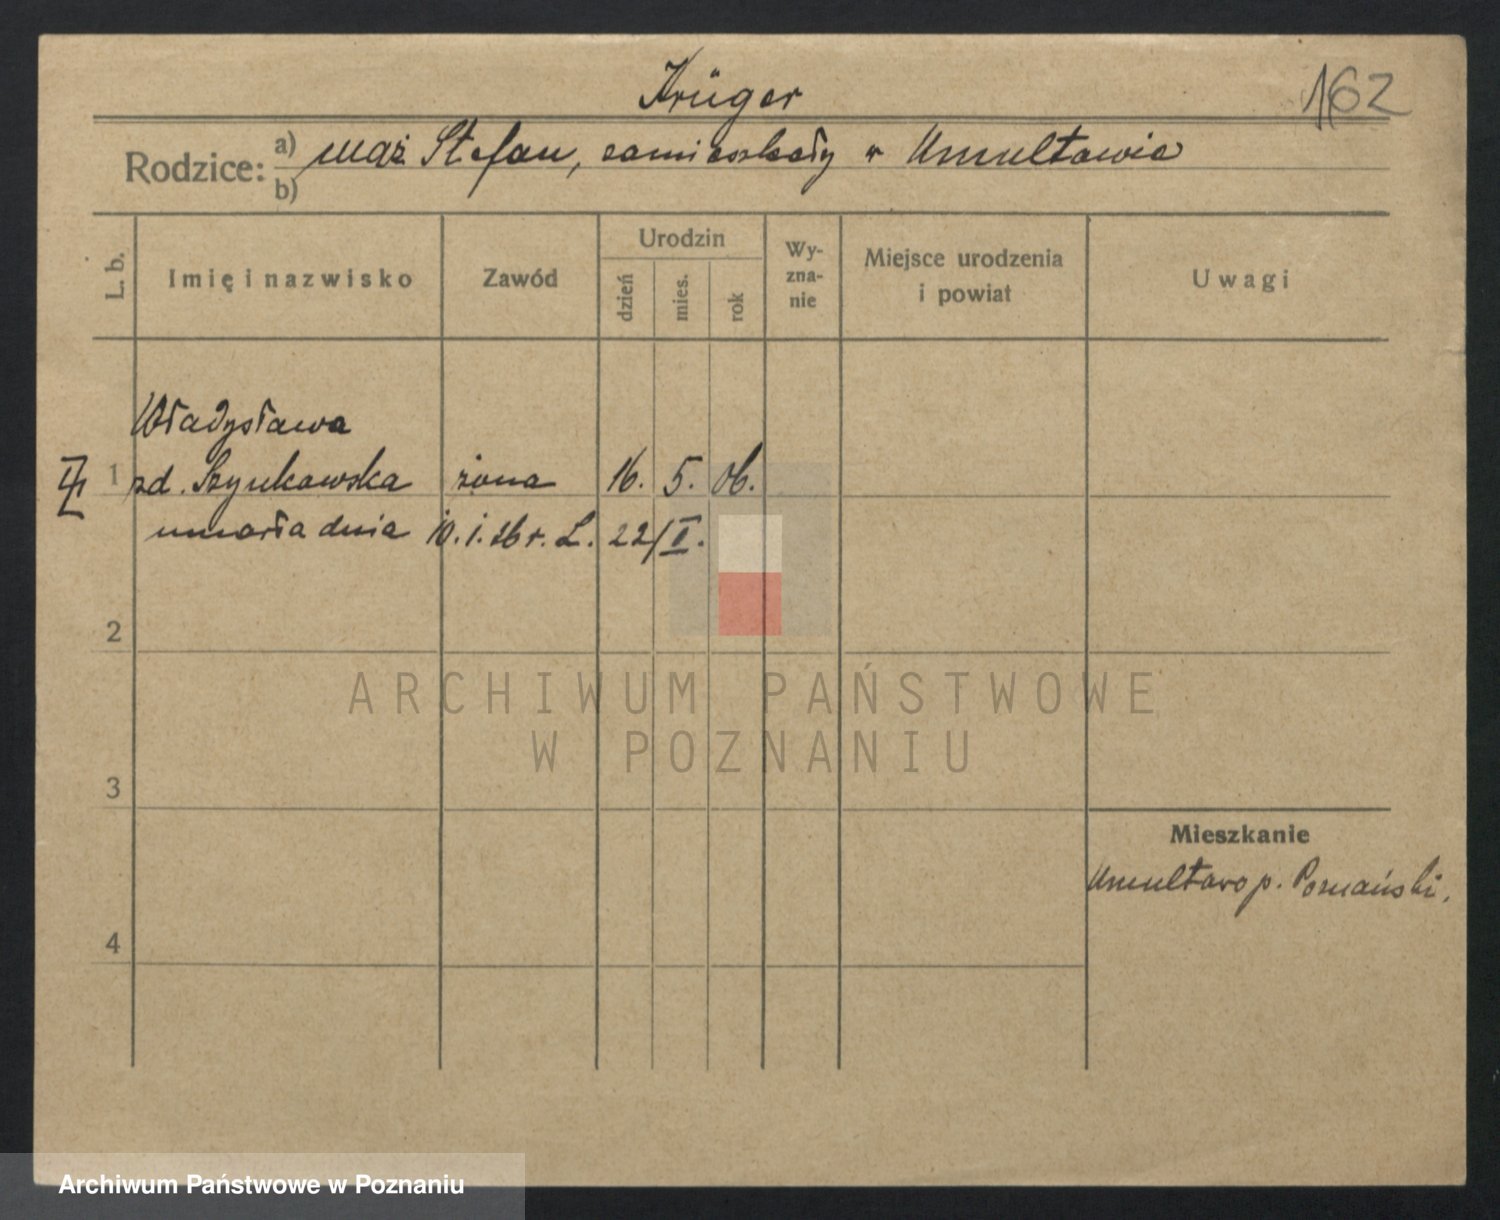 Krüger
162
Rodzice: a) mąż Stefan, zamieszkały w Umultowie
b)
L. b.
Imię i nazwisko
Zawód
Urodzin
dzień
mies.
rok
Wy-
zna-
nie
Miejsce urodzenia
i powiat
Uwagi
Władysława
1 zd. Szynkowska żona 16. 5. 06.
umarła dnia 10. 1. 26 r. L. 22/I.
2
3
4
Mieszkanie
Umultowo p. Poznański.
ARCHIWUM PAŃSTWOWE
W POZNANIU
Archiwum Państwowe w Poznaniu